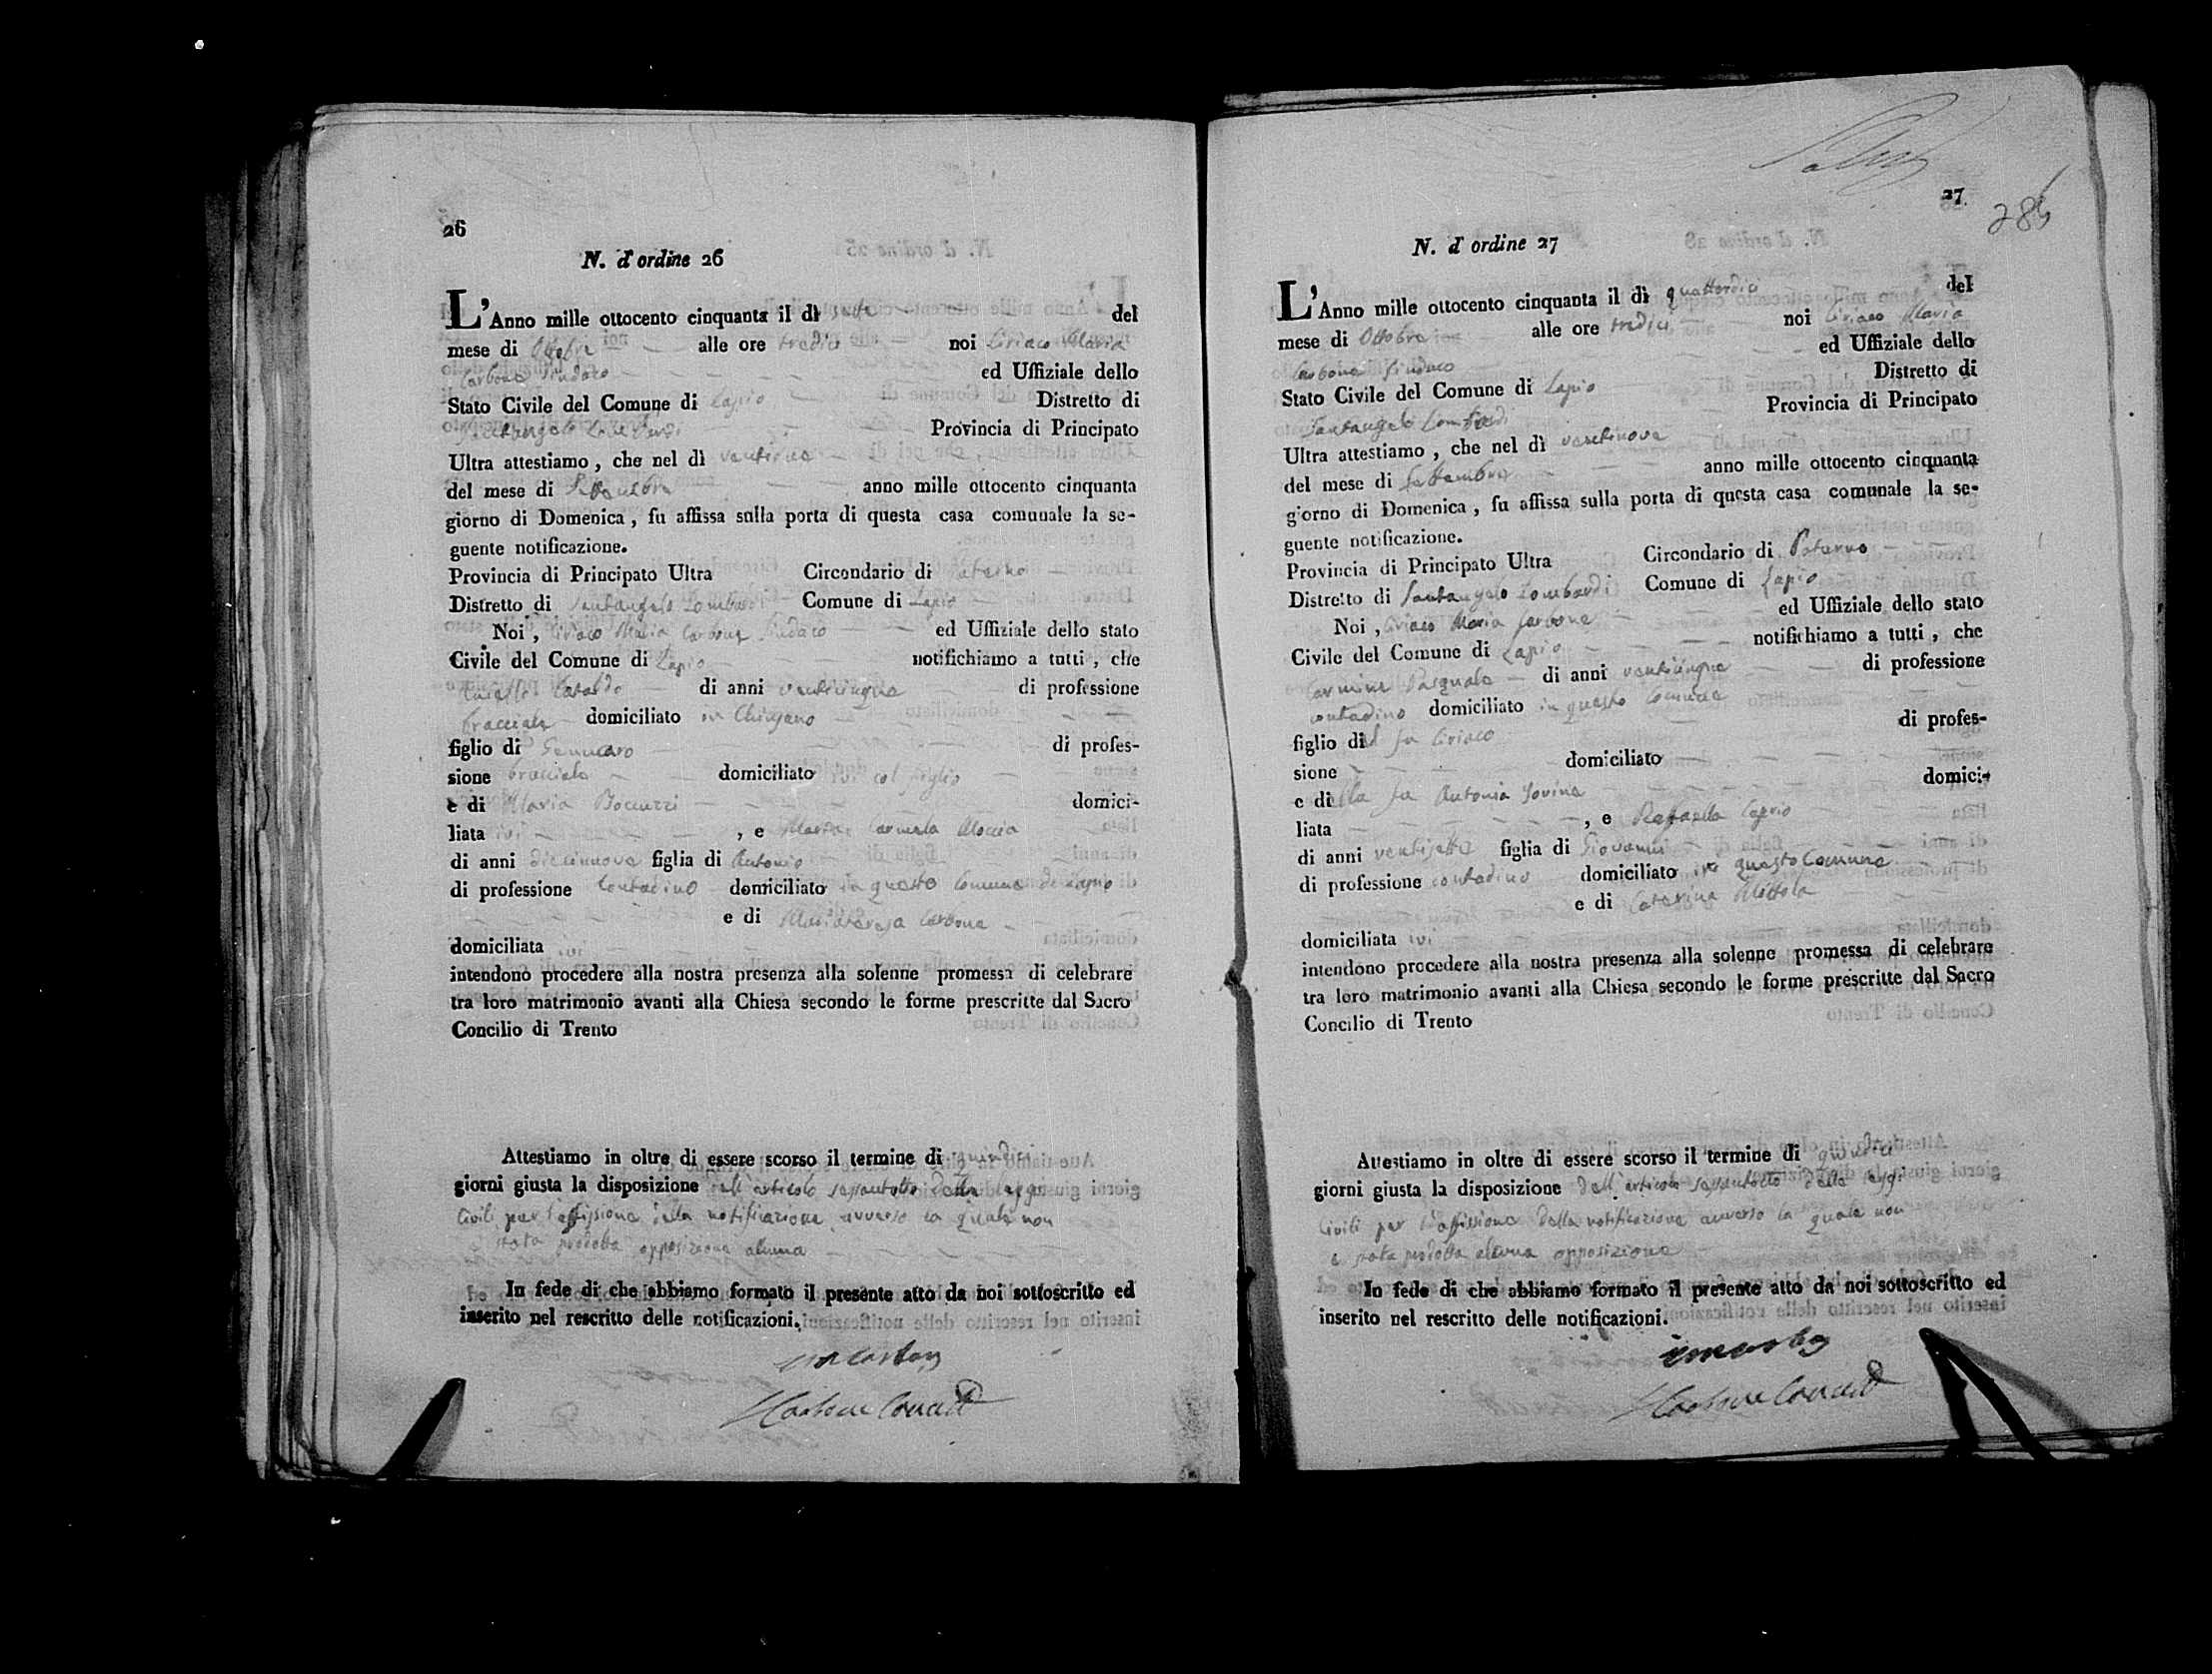 26
N. d'ordine 26
L'Anno mille ottocento cinquanta il dì sette del
mese di Ottobre alle ore tredici noi Ciriaco Maria
Carbone Sindaco ed Uffiziale dello
Stato Civile del Comune di Lapio Distretto di
Santangelo Lombardi Provincia di Principato
Ultra attestiamo, che nel dì
del mese di Settembre anno mille ottocento cinquanta
giorno di Domenica, fu affissa sulla porta di questa casa comunale la se-
guente notificazione.
Provincia di Principato Ultra Circondario di Paterno
Distretto di Santangelo Lombardi Comune di Lapio
Noi, Ciriaco Maria Carbone Sindaco ed Uffiziale dello stato
Civile del Comune di Lapio notifichiamo a tutti, che
Cataldo di anni venticinque di professione
bracciale domiciliato in
figlio di Gennaro di profes-
sione bracciale domiciliato ivi col figlio
e di Maria domici-
liata ivi , e Maria Carmela Moccia
di anni diecinnove figlia di Antonio
di professione contadino domiciliato in questo Comune di Lapio
e di Mariateresa Carbone
domiciliata ivi
intendono procedere alla nostra presenza alla solenne promessa di celebrare
tra loro matrimonio avanti alla Chiesa secondo le forme prescritte dal Sacro
Concilio di Trento
Attestiamo in oltre di essere scorso il termine di quindici
giorni giusta la disposizione dell'articolo sessantotto delle leggi
Civili per l'affissione della notificazione avverso la quale non
è stata prodotta opposizione alcuna
In fede di che abbiamo formato il presente atto da noi sottoscritto ed
inserito nel rescritto delle notificazioni.
27
286
N. d'ordine 27
L'Anno mille ottocento cinquanta il dì quattordici del
mese di Ottobre alle ore tredici noi Ciriaco Maria
Carbone Sindaco ed Uffiziale dello
Stato Civile del Comune di Lapio Distretto di
Santangelo Lombardi Provincia di Principato
Ultra attestiamo, che nel dì ventinove
del mese di Settembre anno mille ottocento cinquanta
giorno di Domenica, fu affissa sulla porta di questa casa comunale la se-
guente notificazione.
Provincia di Principato Ultra Circondario di Paterno
Distretto di Santangelo Lombardi Comune di Lapio
Noi, Ciriaco Maria Carbone ed Uffiziale dello stato
Civile del Comune di Lapio notifichiamo a tutti, che
Carmine Pasquale di anni venticinque di professione
contadino domiciliato in questo Comune
figlio del fu Ciriaco di profes-
sione domiciliato
e della fu Antonia Iovine domici-
liata , e Raffaella Caprio
di anni ventisette figlia di Giovanni
di professione contadino domiciliato in questo Comune
e di Caterina Mottola
domiciliata ivi
intendono procedere alla nostra presenza alla solenne promessa di celebrare
tra loro matrimonio avanti alla Chiesa secondo le forme prescritte dal Sacro
Concilio di Trento
Attestiamo in oltre di essere scorso il termine di quindici
giorni giusta la disposizione dell'articolo sessantotto delle leggi
Civili per l'affissione della notificazione avverso la quale non
è stata prodotta alcuna opposizione
In fede di che abbiamo formato il presente atto da noi sottoscritto ed
inserito nel rescritto delle notificazioni.